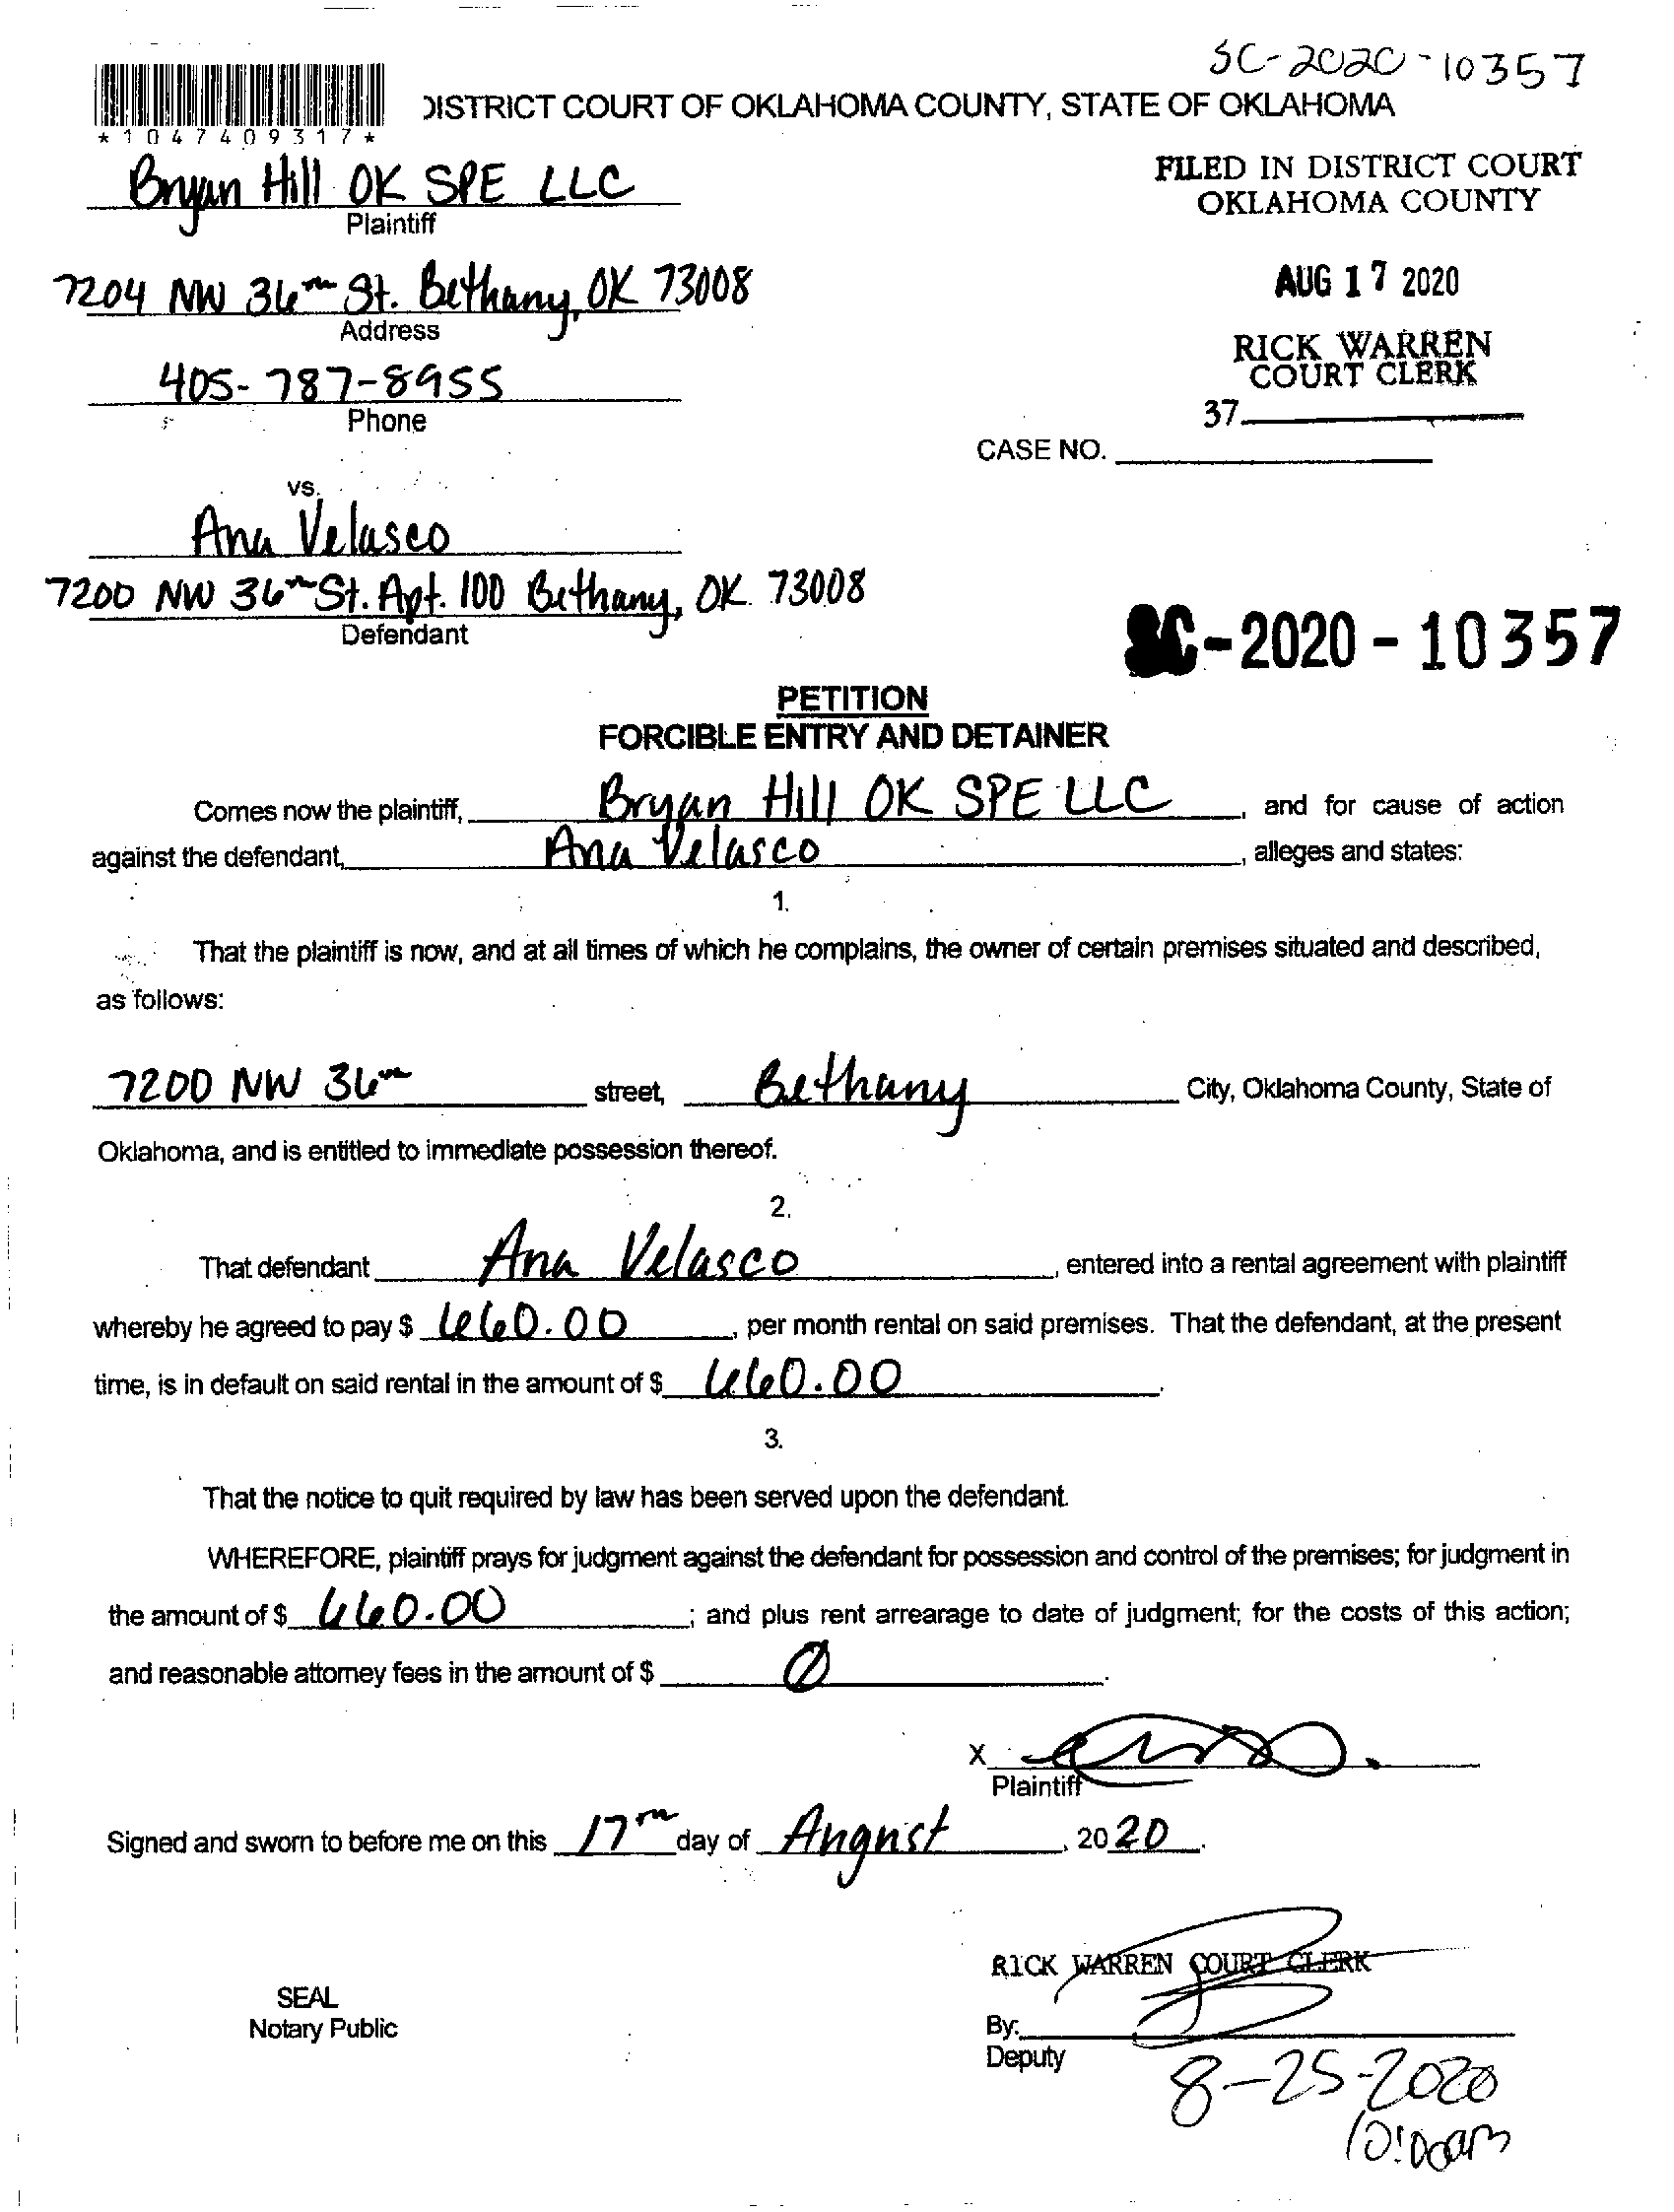 SC-2020-10357
DISTRICT COURT OF OKLAHOMA COUNTY, STATE OF OKLAHOMA
*1047409317*
Bryan Hill OK SPE LLC
Plaintiff
FILED IN DISTRICT COURT
OKLAHOMA COUNTY
7204 NW 36th St. Bethany, OK 73008
Address
AUG 17 2020
RICK WARREN
COURT CLERK
405-787-8955
Phone
37
CASE NO.
vs.
Ana Velasco
7200 NW 36th St. Apt. 100 Bethany, OK 73008
Defendant
SC-2020-10357
PETITION
FORCIBLE ENTRY AND DETAINER
Comes now the plaintiff, Bryan Hill OK SPE LLC, and for cause of action
against the defendant, Ana Velasco, alleges and states:
1.
That the plaintiff is now, and at all times of which he complains, the owner of certain premises situated and described,
as follows:
7200 NW 36th street, Bethany City, Oklahoma County, State of
Oklahoma, and is entitled to immediate possession thereof.
2.
That defendant Ana Velasco, entered into a rental agreement with plaintiff
whereby he agreed to pay $ 660.00, per month rental on said premises. That the defendant, at the present
time, is in default on said rental in the amount of $ 660.00.
3.
That the notice to quit required by law has been served upon the defendant.
WHEREFORE, plaintiff prays for judgment against the defendant for possession and control of the premises; for judgment in
the amount of $ 660.00; and plus rent arrearage to date of judgment; for the costs of this action;
and reasonable attorney fees in the amount of $ 0.
X
Plaintiff
Signed and sworn to before me on this 17th day of August, 2020.
RICK WARREN COURT CLERK
SEAL
Notary Public
By:
Deputy
8-25-2020
10:00am